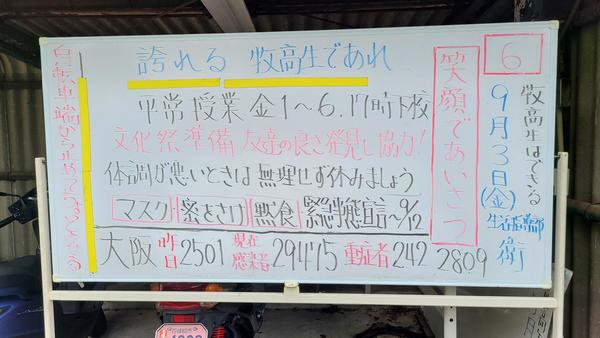 牧高生はできる
6
9月3日(金)
生活指導部
衛
笑顔であいさつ
誇れる 牧高生であれ
平常授業 金1〜6.17時下校
文化祭準備 友達の良さ発見し協力!
体調が悪いときは無理せず休みましょう
マスク 密をさけ 黙食 緊急事態宣言〜9/12
大阪 昨日2501 現在感染者29475 重症者242 2809
自転車端から